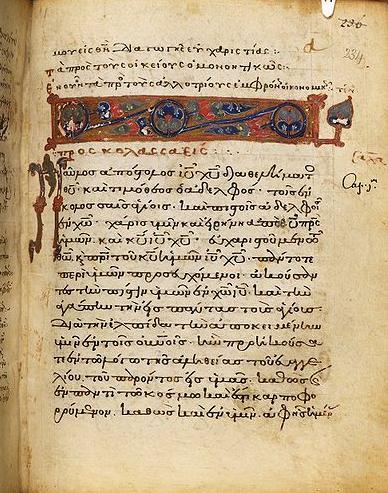 234
τὰ πρὸς τοὺς οἰκείους
τοὺς ἀλλοτρίους
πρὸς κολασσαεῖς:
Παῦλος ἀπόστολος ιυ χυ διὰ θελήματ
θυ καὶ τιμόθεος ὁ ἀδελφὸς· τοῖς ἐν
κολοσσαῖς ἁγίοις· καὶ πιστοῖς ἀδελφοῖς
ἐν χω· χάρις ὑμῖν καὶ εἰρήνη ἀπὸ θυ πρς
ἡμῶν. καὶ κυ ιυ χυ· εὐχαριστοῦμεν τῶ
θω κ πρι τοῦ κυ ἡμῶν ιυ χυ. πάντοτε
περὶ ὑμῶν προσευχόμενοι· ἀκούσαν
τες τὴν πίστιν ὑμῶν ἐν χω ιυ. καὶ τὴν
ἀγάπην τὴν εἰς πάντας τοὺς ἁγίους·
Διὰ τὴν ἐλπίδα τὴν ἀποκειμένην
ὑμῖν ἐν τοῖς οὐνοῖς· ἣν προηκούσα
τε ἐν τῶ λόγω τῆς ἀληθείας τοῦ εὐαγγε
λίου. τοῦ παρόντος εἰς ὑμᾶς. καθὼς κ
ἐν παντὶ τῶ κόσμω καὶ ἔστι καρποφο
ρούμενον. καθὼς καὶ ἐν ὑμῖν. ἀφ' ἧς ἡμέρ